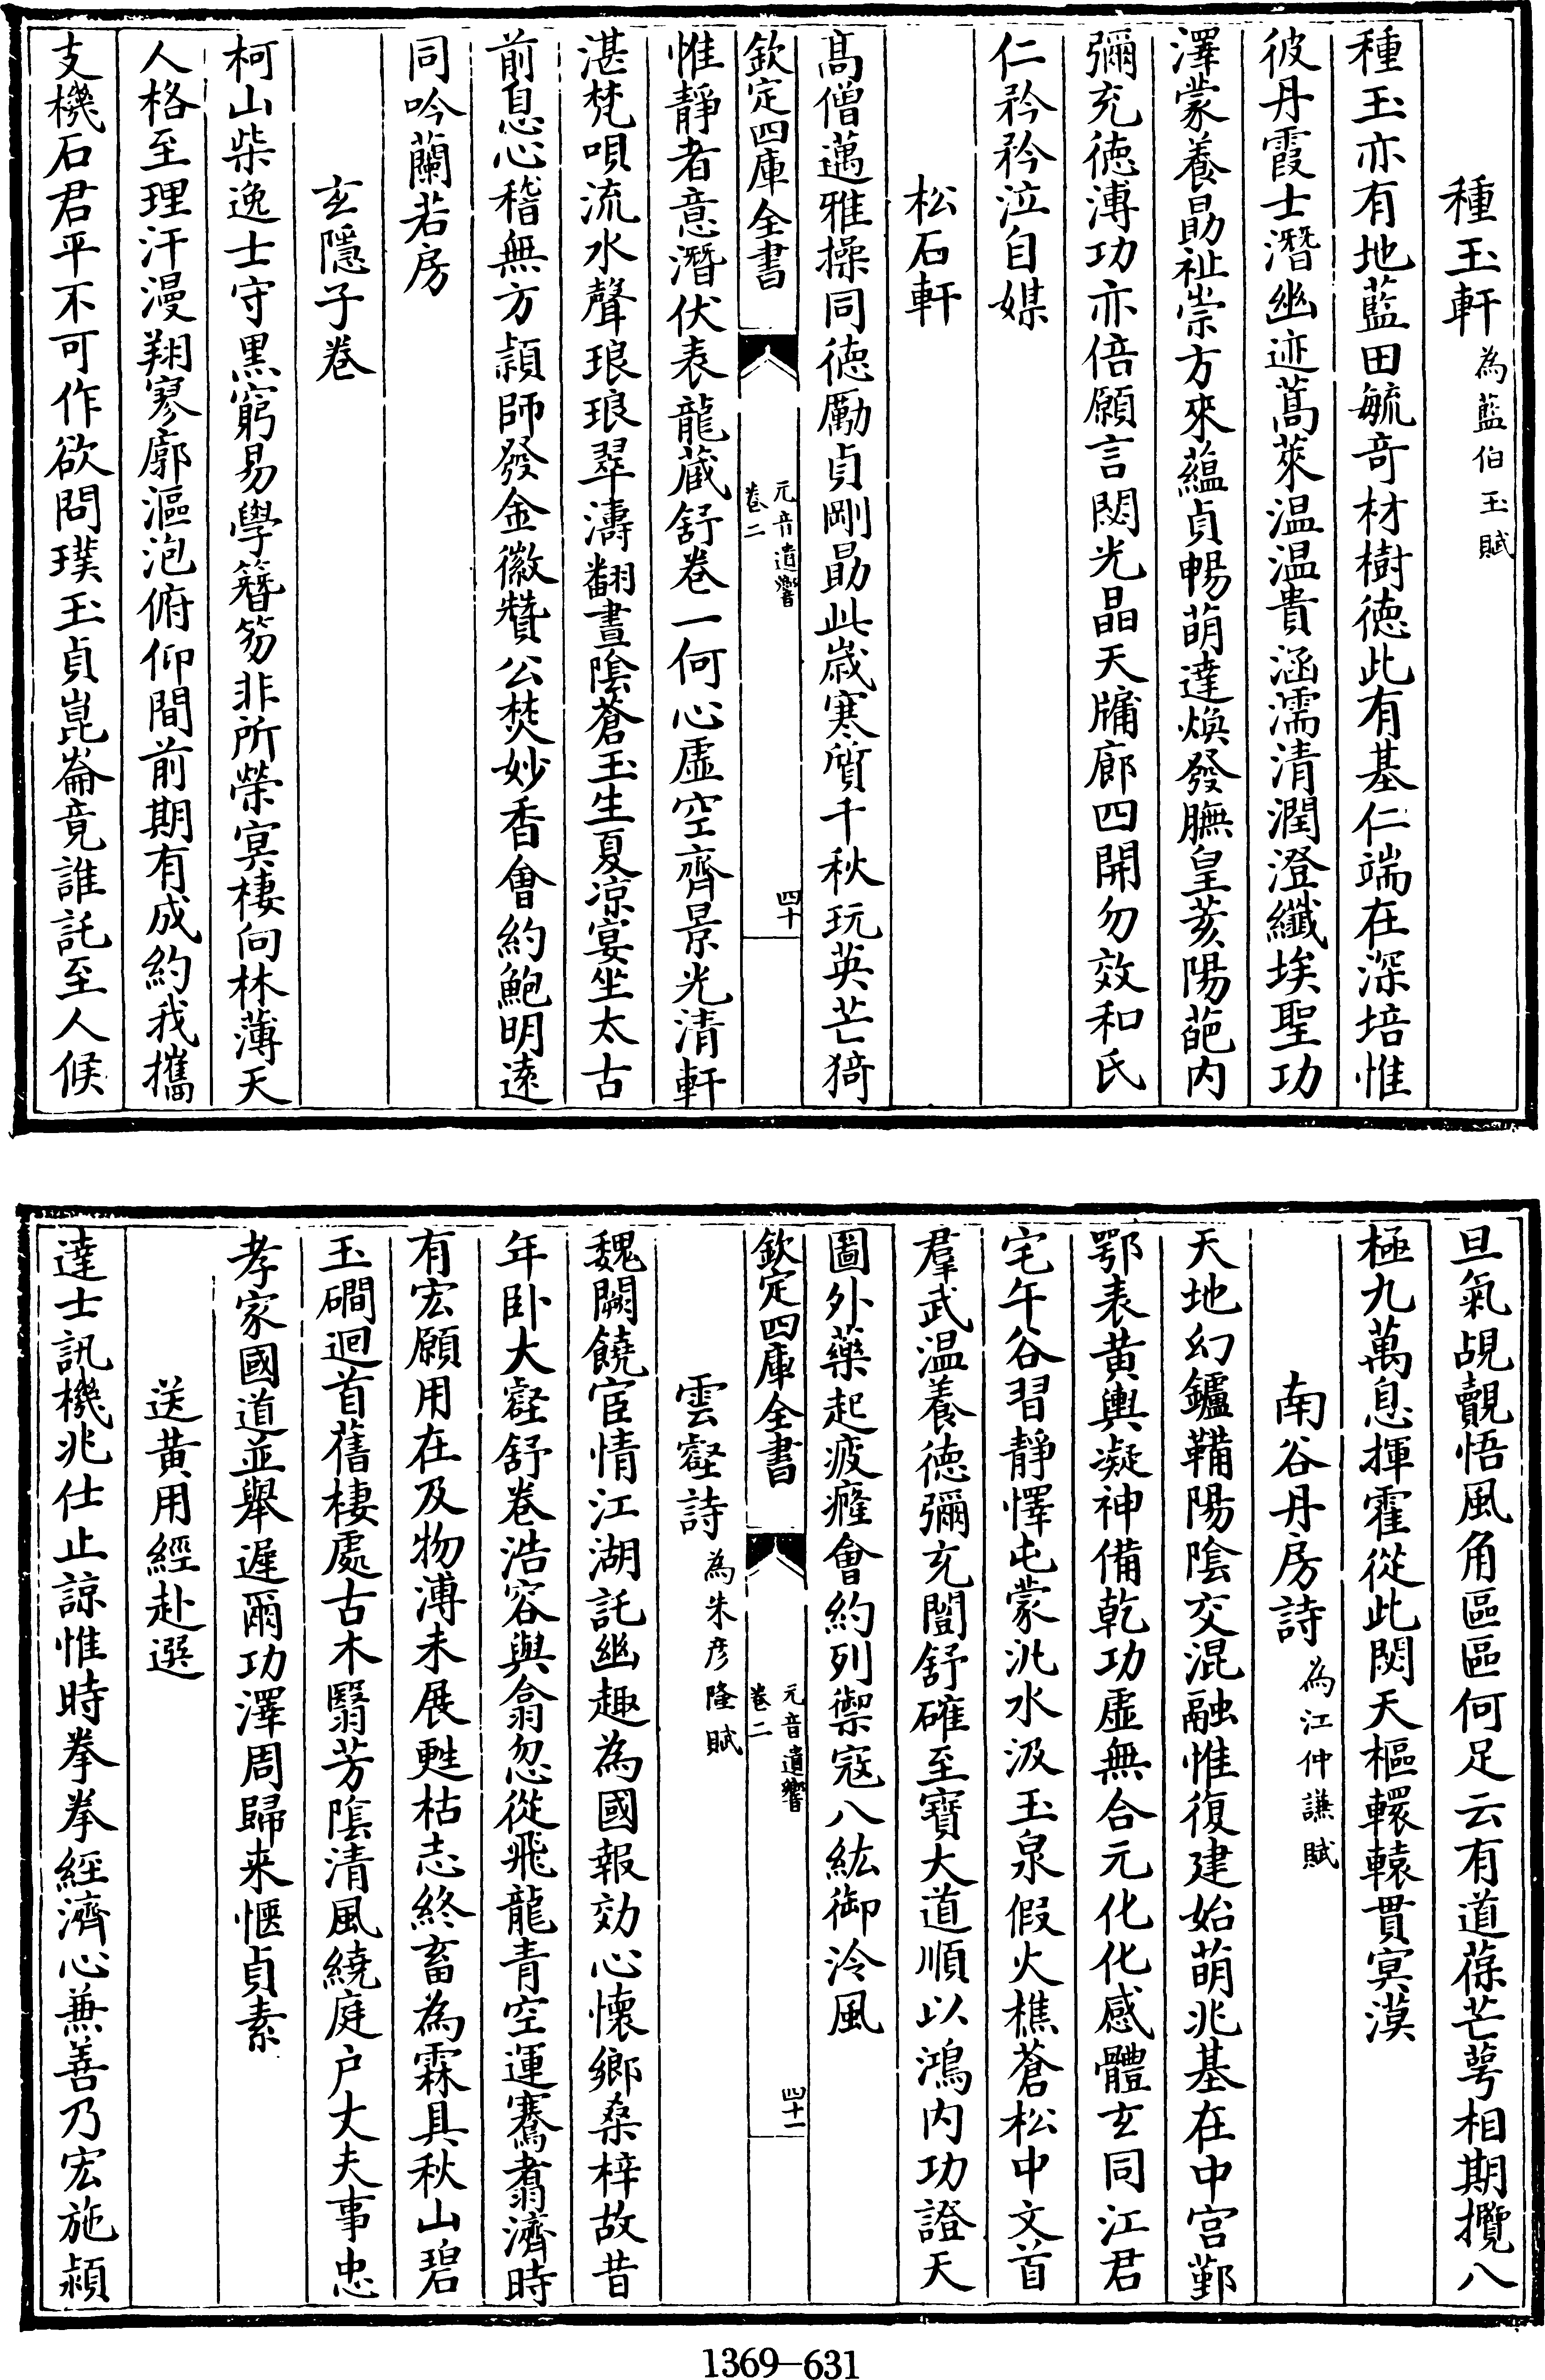 種玉軒為藍伯玉賦
種玉亦有地藍田毓竒材樹徳此有基仁端在深培惟
彼丹霞士潛幽迹蒿萊温温貴涵濡清潤澄纎埃聖功
澤蒙養勗祉崇方來藴貞暢萌達煥發膴皇荄陽葩内
彌充徳溥功亦倍願言閟光晶天牖廊四開勿效和氏
仁矜矜泣自媒
松石軒
髙僧邁雅操同徳勵貞剛勗此嵗寒質千秋玩英芒猗
欽定四庫全書
元音遺響
卷二
四十
惟靜者意潛伏表龍蔵舒卷一何心虚空齊景光清軒
湛梵唄流水聲琅琅翠濤翻晝陰蒼玉生夏凉宴坐太古
前息心稽無方頴師發金徽贊公焚妙香㑹約鮑明逺
同吟蘭若房
玄隱子卷
柯山柴逸士守黒窮易學簪笏非所榮寞棲向林薄天
人格至理汗漫翔寥廓漚泡俯仰間前期有成約我攜
支機石君平不可作欲問璞玉貞崑崙竟誰託至人候
旦氣覘覿悟風角區區何足云有道葆芒萼相期攬八
極九萬息揮霍從此閟天樞轘轅貫寞漠
南谷丹房詩為江仲謙賦
天地幻鑪鞴陽陰交混融惟復建始萌兆基在中宫鄞
鄂表黄輿凝神備乾功虚無合元化化感體玄同江君
宅午谷習靜懌屯蒙沘水汲玉泉假火樵蒼松中文首
羣武温養徳彌充闓舒確至寶大道順以鴻内功證天
圖外藥起疲癃會約列禦寇八紘御泠風
欽定四庫全書
元音遺響
卷二
四十一
雲壑詩為朱彦隆賦
魏闕饒宦情江湖託幽趣為國報効心懷鄉桑梓故昔
年卧大壑舒卷浩容與翕忽從飛龍青空運騫翥濟時
有宏願用在及物溥未展甦枯志終畜為霖具秋山碧
玉磵迴首舊棲處古木翳芳隂清風繞庭户丈夫事忠
孝家國道並舉遲爾功澤周歸来愜貞素
送黄用經赴選
達士訊機兆仕止諒惟時拳拳經濟心兼善乃宏施頴
1369—631